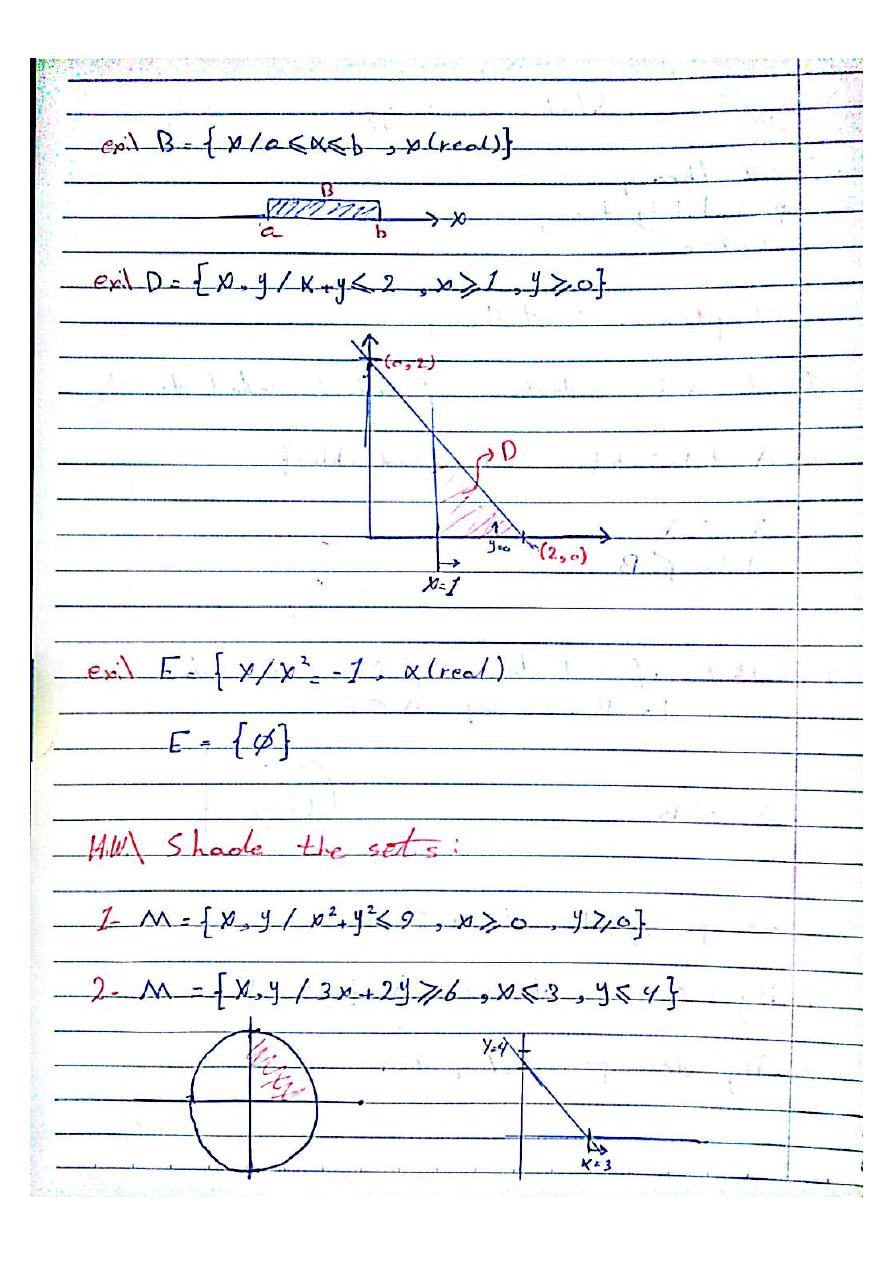 ex:\ B = { x / a ⩽ x ⩽ b , x (real)}
B
a b x
ex:\ D = { x . y / x + y ⩽ 2 , x ⩾ 1 , y ⩾ 0}
(0, 2)
D
y=0 (2, 0)
x=1
ex:\ E = { x / x² = -1 , x (real)
E = {∅}
H.W\ Shade the sets :
1- M = { x , y / x² + y² ⩽ 9 , x ⩾ 0 , y ⩾ 0}
2- M = { x , y / 3x + 2y ⩾ 6 , x ⩽ 3 , y ⩽ 4}
y=4
x=3